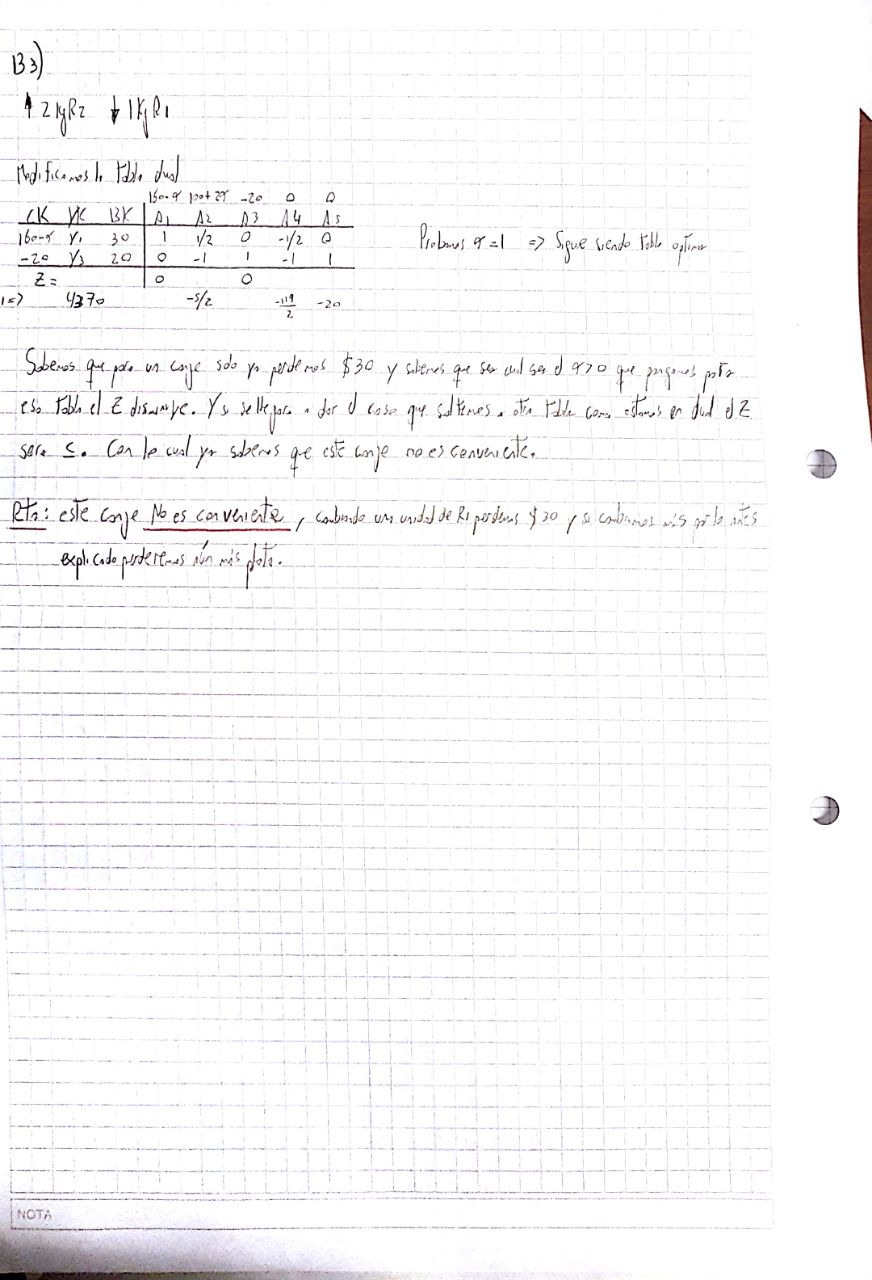 B3)
↑ 2 Kg R2 ↓ 1 Kg R1
Modificamos la tabla dual
160-α 100+2α -20 0 0
CK YK BK A1 A2 A3 A4 A5
160-α Y1 30 1 1/2 0 -1/2 0
-20 Y3 20 0 -1 1 -1 1
Probamos α=1 => Sigue siendo tabla optima
Z= 0 0
1=> 4370 -5/2 -119/2 -20
Sabemos que para un canje solo ya perdemos $30 y sabemos que sea cual sea el α>0 que pongamos para
esa tabla el Z disminuye. Y si se llegara a dar el caso que saltemos a otra tabla como estamos en dual el Z
sera ≤. Con lo cual ya sabemos que este canje no es conveniente.
Rta: este canje No es conveniente, cambiando una unidad de R1 perdemos $30 y si cambiamos más por lo antes
explicado perderemos aún más plata.
NOTA